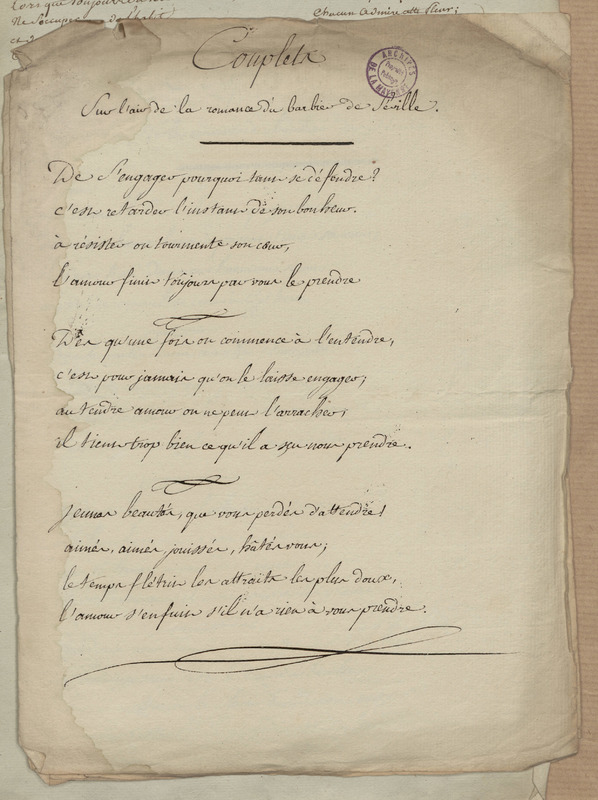 lorsque toujours
Ne s'occupe
Chacun admire cette fleur;
Couplets
ARCHIVES
DE LA MAYENNE
Sur l'air de la romance du barbier de Séville.
De s'engager pourquoi tant se défendre?
c'est retarder l'instant de son bonheur.
à résister on tourmente son cœur,
l'amour finit toujours par vous le prendre
Dès qu'une fois on commence à l'entendre,
c'est pour jamais qu'on le laisse engager;
au tendre amour on ne peut l'arracher;
il tient trop bien ce qu'il a scu nous prendre.
jeunes beautés, que vous perdés d'attendre!
aimés, aimés, jouissés, hâtés vous;
le temps flétrit les attraits les plus doux,
l'amour s'enfuit s'il n'a rien à vous prendre.